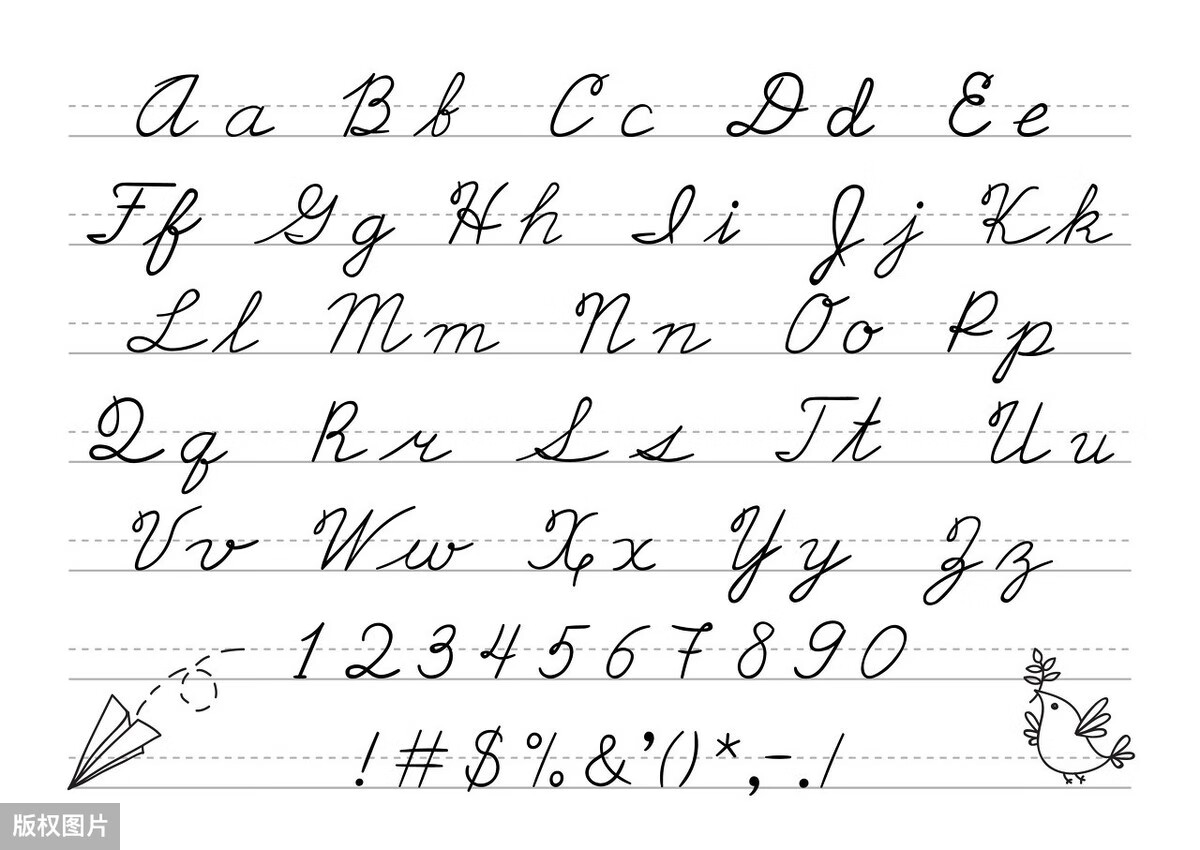 A a B b C c D d E e
F f G g H h I i J j K k
L l M m N n O o P p
Q q R r S s T t U u
V v W w X x Y y Z z
1 2 3 4 5 6 7 8 9 0
! # $ % & ’ ( ) * , - . /
版权图片